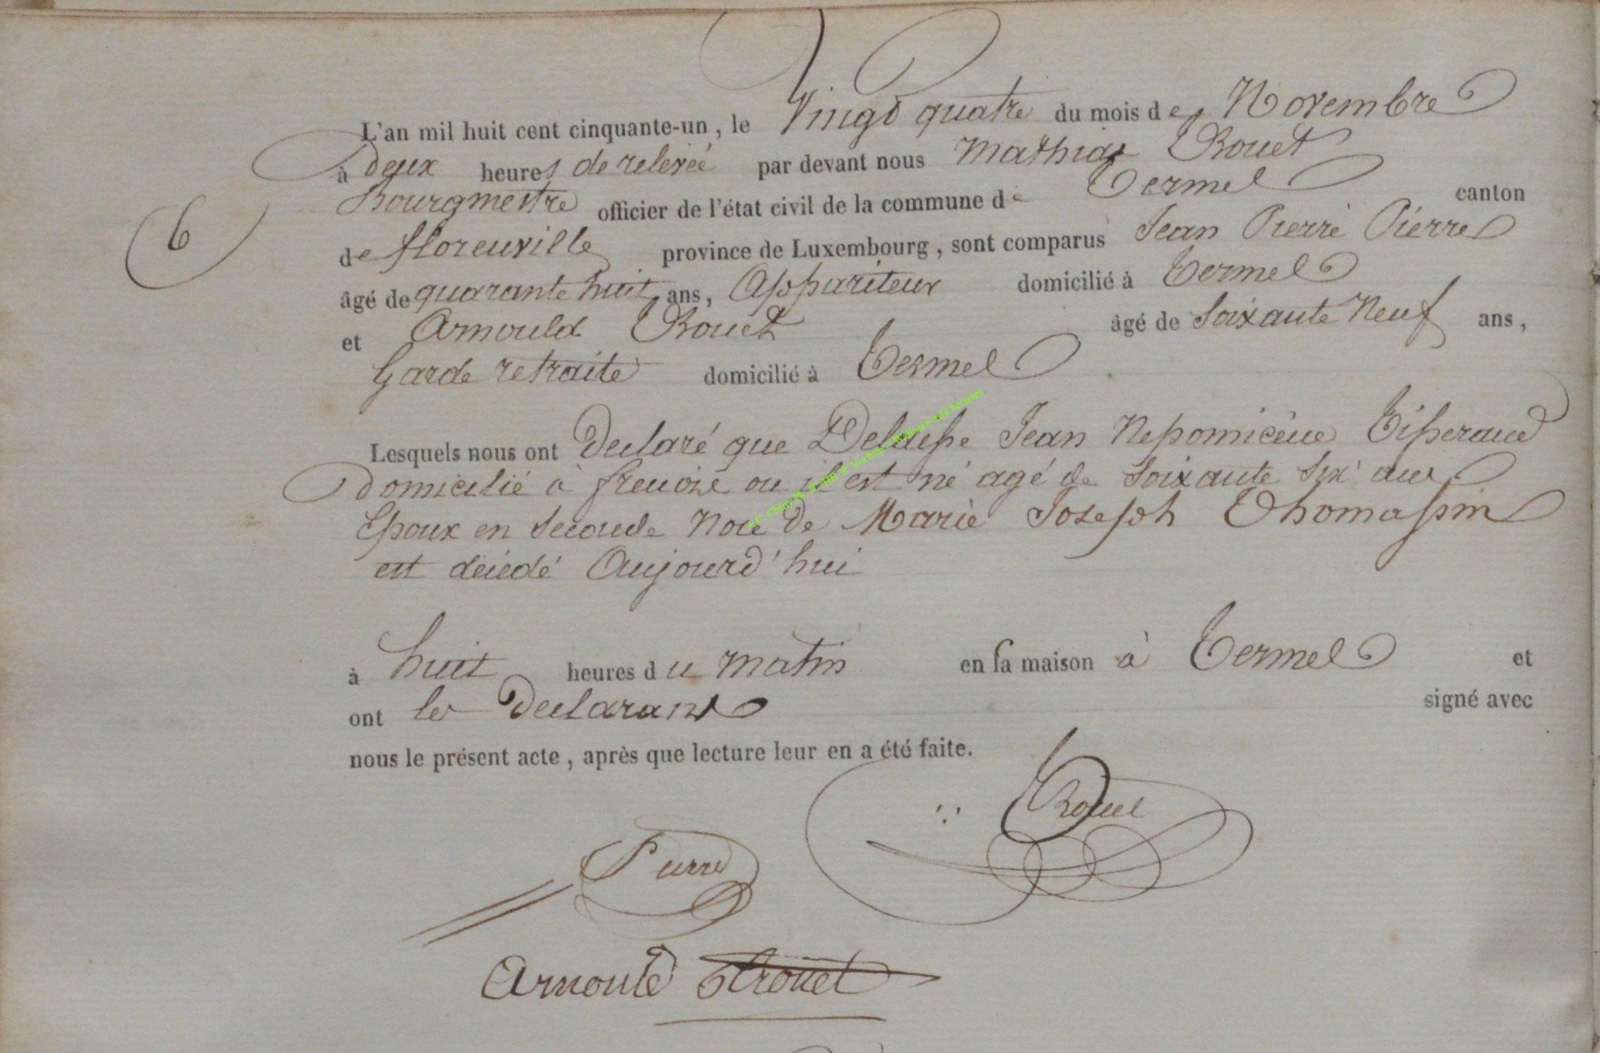 L'an mil huit cent cinquante-un, le Vingt quatre du mois de Novembre
à deux heures de relevée par devant nous Mathias Rouet
Bourgmestre officier de l'état civil de la commune de Termel canton
de florenville province de Luxembourg, sont comparus Jean Pierre Pierre
âgé de quarante huit ans, Appariteur domicilié à Termel
et Arnould Rouet âgé de Soixante Neuf ans,
Garde retraité domicilié à Termel
6
Lesquels nous ont declaré que Jean Nepomicène Tisserand
domicilié à ou il est né agé de Soixante Six ans
Epoux en Seconde Noce de Marie Joseph Thomassin
est décédé Aujourd'hui
à huit heures du matin en sa maison à Termel et
ont les Declarans signé avec
nous le présent acte, après que lecture leur en a été faite.
Rouet
Pierre
Arnould Rouet